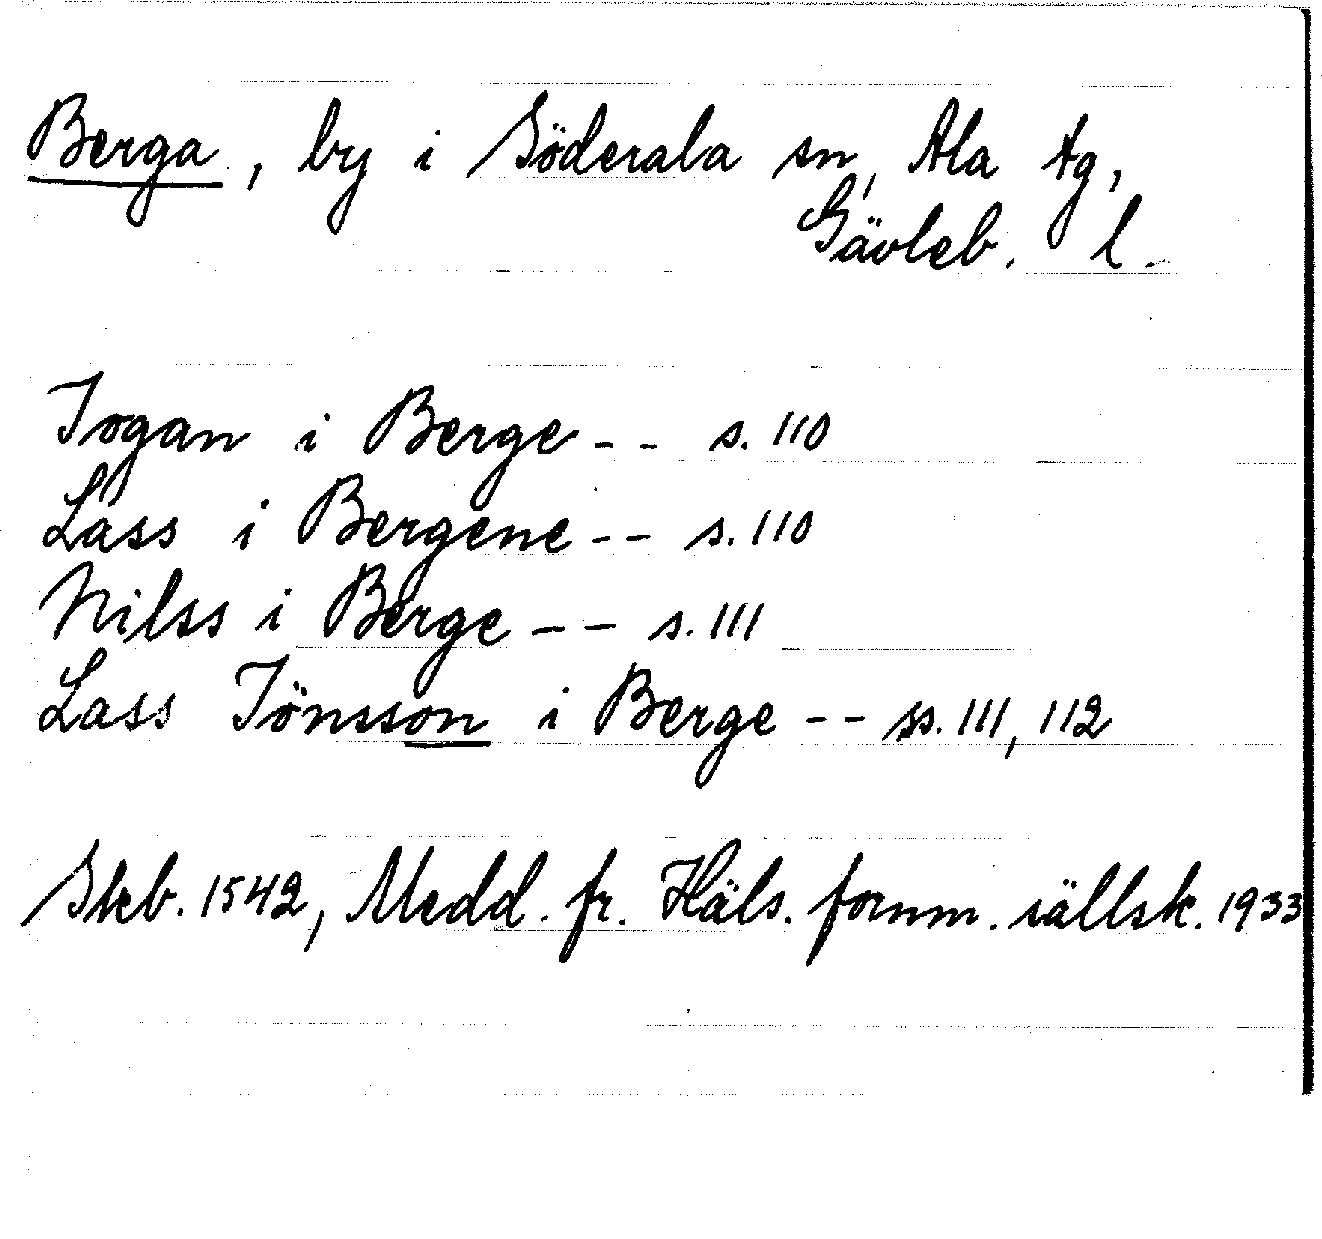 Berga, by i Söderala sn, Ala tg,
Gävleb. l.
Jogan i Berge -- s. 110
Lass i Bergene -- s. 110
Nilss i Berge -- s. 111
Lass Jönsson i Berge -- ss. 111, 112
Skb. 1542, Medd. fr. Häls. fornm. sällsk. 1933